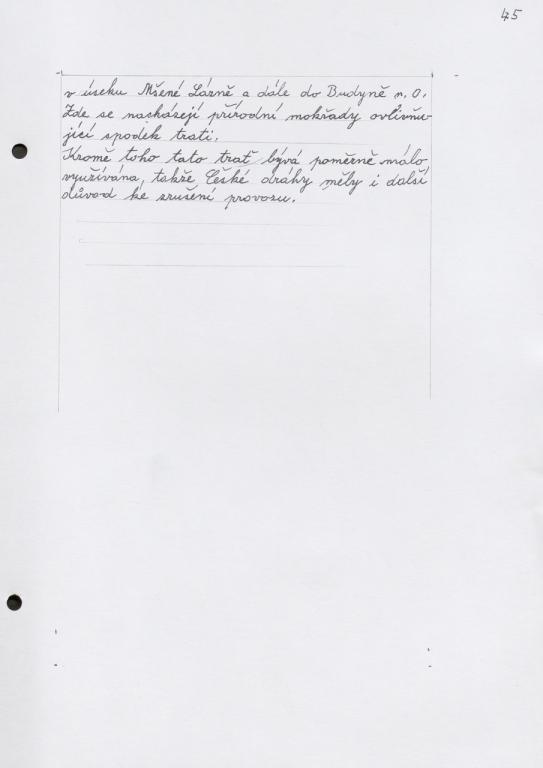 45
v úseku Mšené Lázně a dále do Budyně n. O.
Zde se nacházejí přírodní mokřady ovlivňu-
jící spodek trati.
Kromě toho tato trať bývá poměrně málo
využívána, takže České dráhy měly i další
důvod ke zrušení provozu.